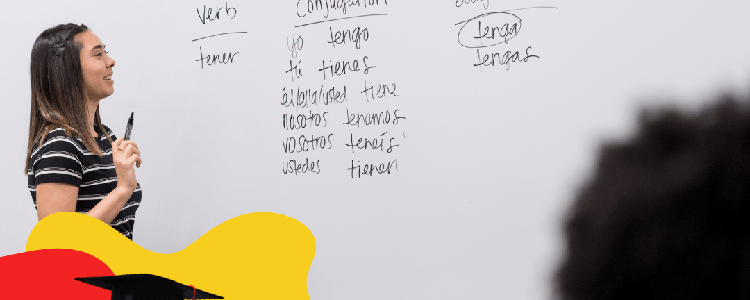 verb
tener
Conjugation
yo tengo
tú tienes
él/ella/usted tiene
nosotros tenemos
vosotros teneís
ustedes tienen
tenga
tengas